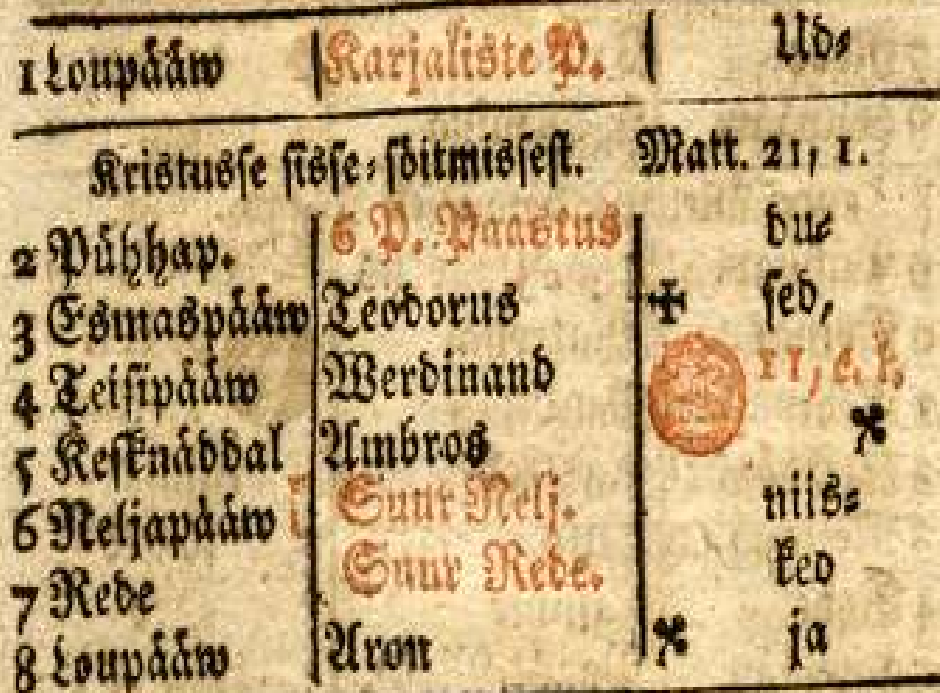 1 Loupääw Karjaliste P. Ud⸗
Kristusse sisse⸗sõitmissest. Matt. 21, 1.
2 Pühhap. 6 P. Paastus du⸗
3 Esmaspääw Teodorus ✠ sed,
4 Teisipääw Werdinand 11, e. l.
5 Kesknäddal Ambros
6 Neljapääw Suur Nelj. niis⸗
7 Rede Suur Rede. ked
8 Loupääw Aron ja